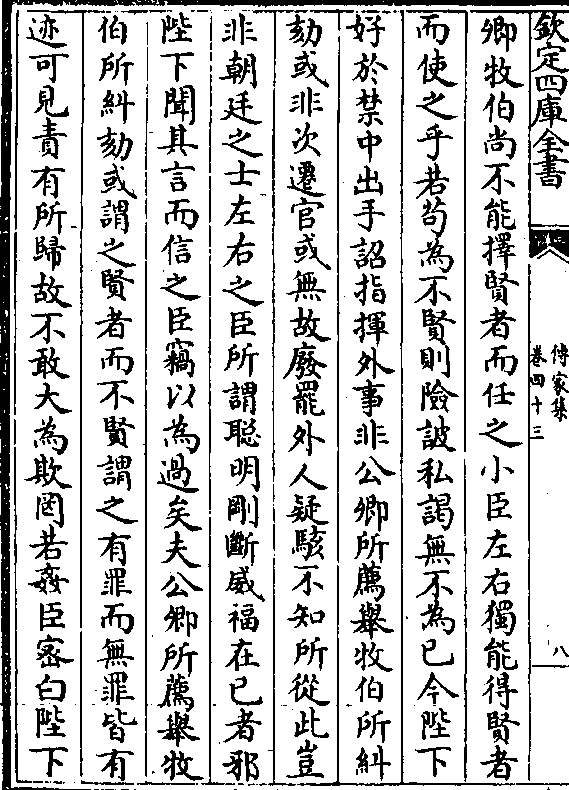 欽定四庫全書
傳家集
卷四十三
八
卿牧伯尚不能擇賢者而任之小臣左右獨能得賢者
而使之乎若苟為不賢則險詖私謁無不為已今陛下
好於禁中出手詔指揮外事非公卿所薦舉牧伯所糾
劾或非次遷官或無故廢罷外人疑駭不知所從此豈
非朝廷之士左右之臣所謂聡明剛斷威福在已者邪
陛下聞其言而信之臣竊以為過矣夫公卿所薦舉牧
伯所糾劾或謂之賢者而不賢謂之有罪而無罪皆有
迹可見責有所歸故不敢大為欺罔若姦臣宻白陛下